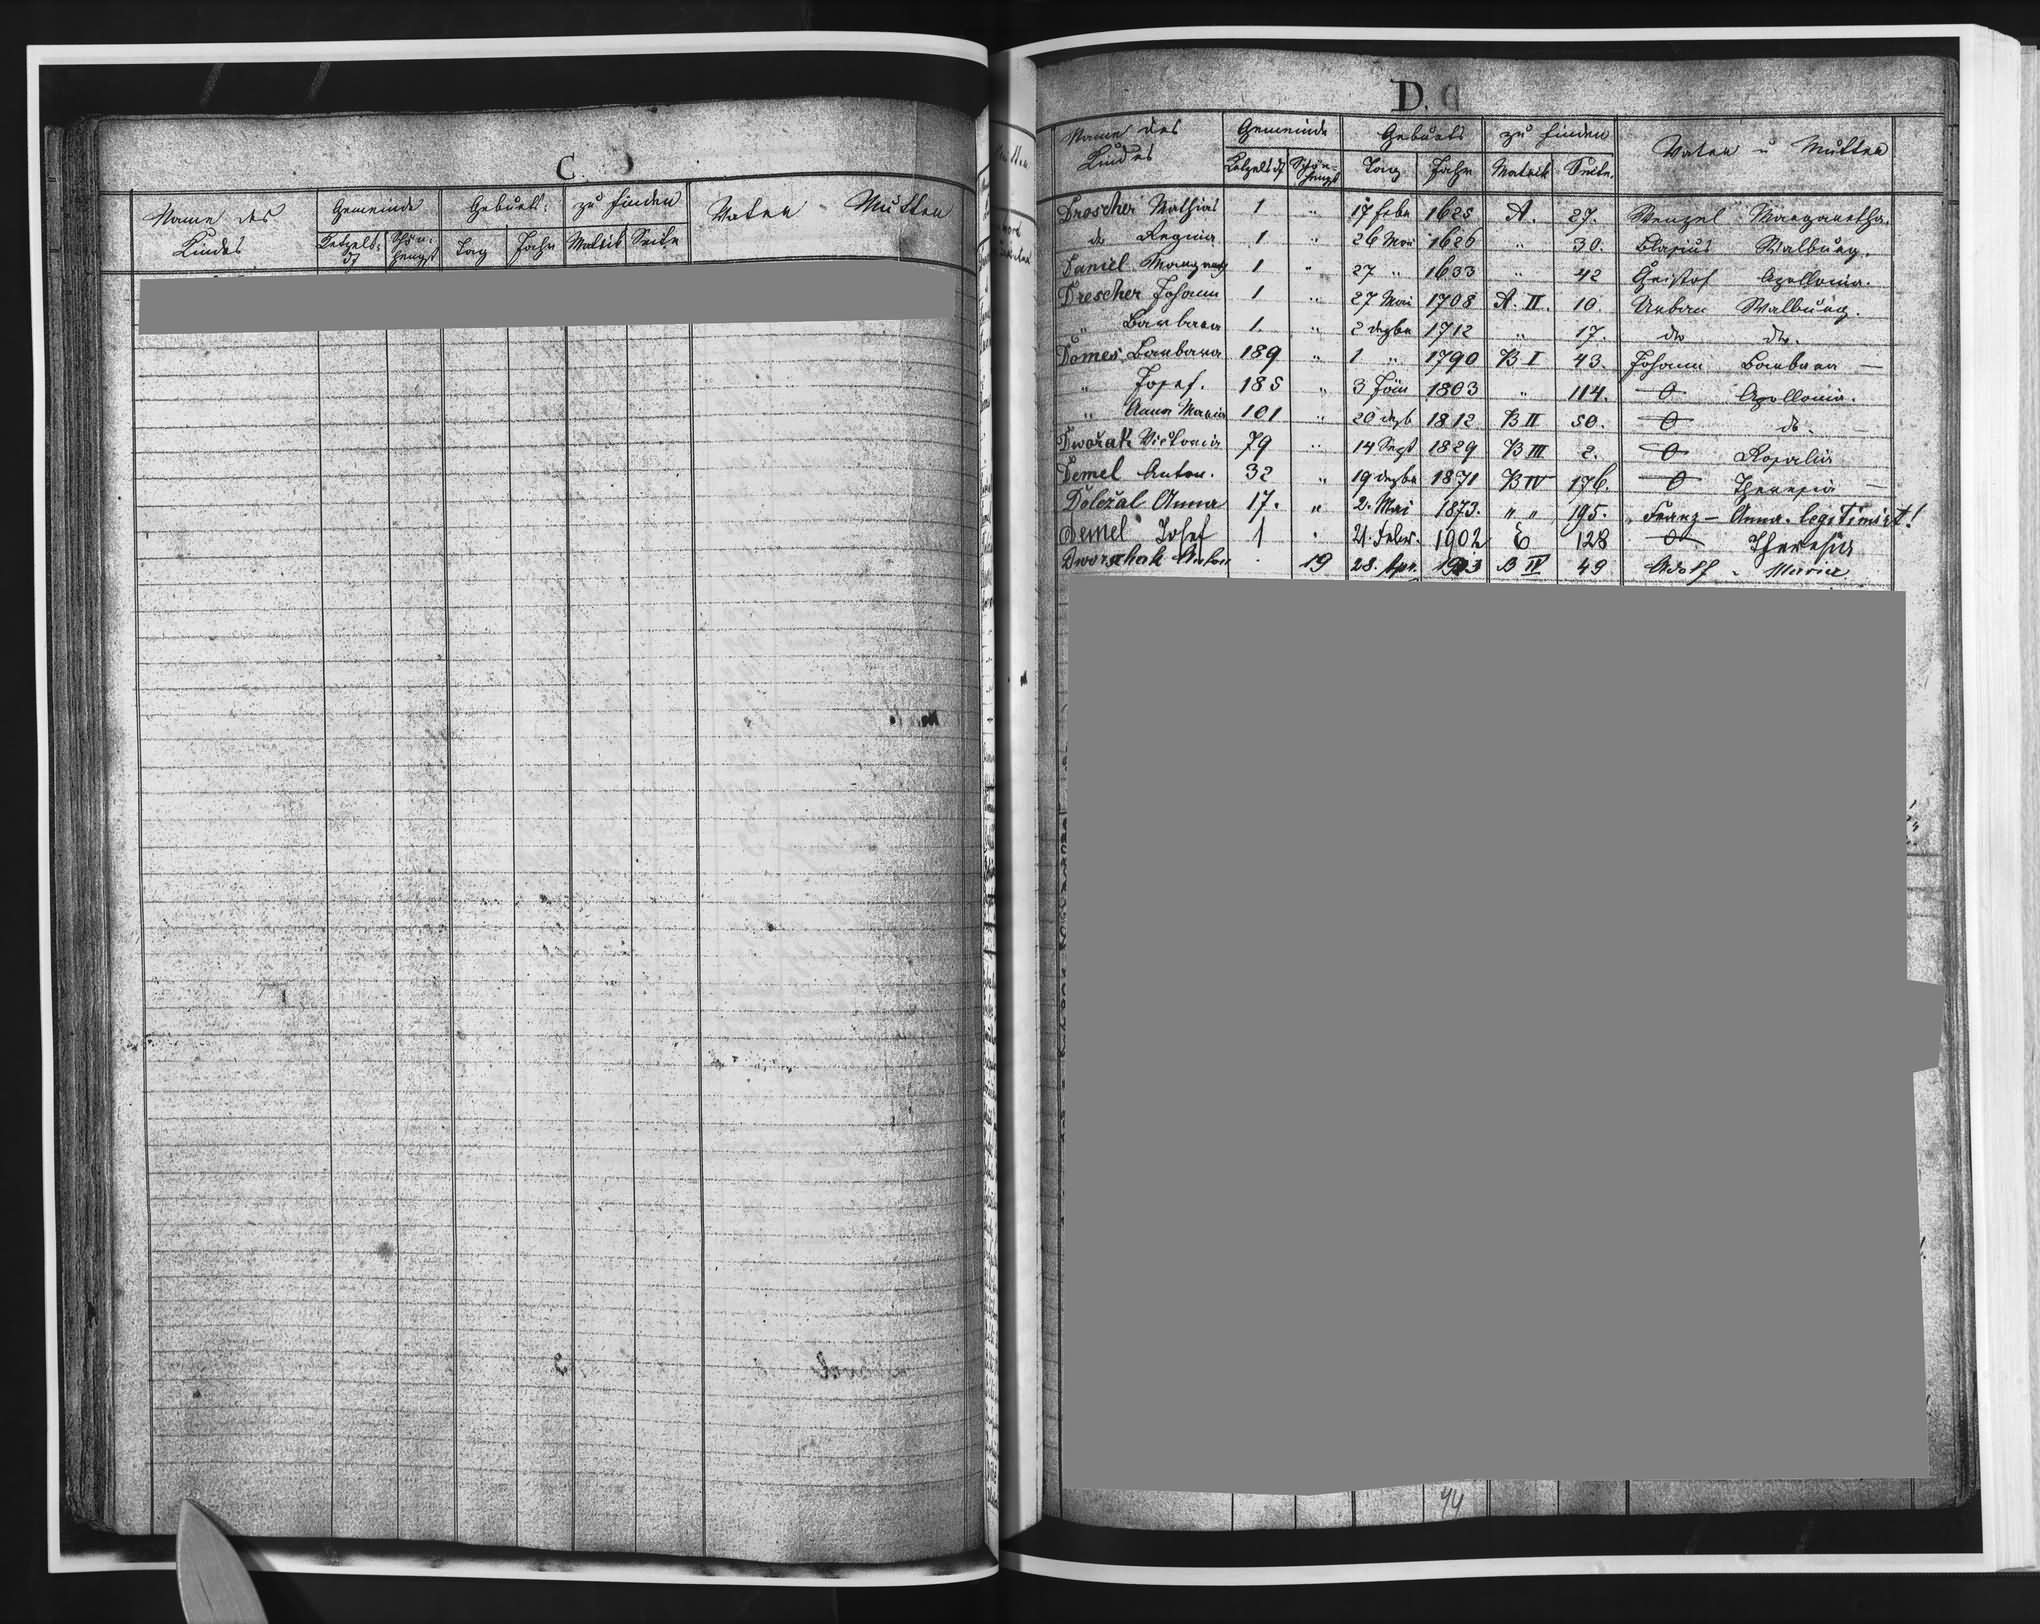 C.
Name des Kindes Gemeinde Geburts: zu finden Vater Mutter
Ketzelsdf Schönhengst Tag Jahr Matrik Seite
D.
Name des Kindes Gemeinde Geburts zu finden Vater u Mutter
Ketzelsdf Schönhengst Tag Jahr Matrik Seite.
Drescher Mathias 1 „ 17 Febr 1625 A. 27. Wenzel Margaretha.
do Regina 1 „ 26 Mai 1626 „ 30. Blasius Walburg.
Daniel 1 „ 27 „ 1633 „ 42 Christof Apollonia.
Drescher Johann 1 „ 27 Mai 1708 A. II. 10. Urban Walburg.
„ Barbara 1. „ 2 dezbr 1712 „ 17. do do.
Domes Barbara 189 „ 1 „ 1790 B I 43. Johann Barbara —
„ Josef. 185 „ 3 Jän 1803 „ 114. O Apollonia.
„ Anna Maria 101 „ 20 dezb 1812 B II 50. O do.
Dwořak Victoria 79 „ 14 Sept 1829 B III 2. O Rosalia
Demel Anton. 32 „ 19 dezbr 1871 B IV 176. O Theresia —
Doležal Anna 17. „ 2. Mai 1873. „ „ 195. Franz — Anna. legitimirt!
Demel Josef 1 „ 21. Febr. 1902 E 128 O Theresia
Dworschak Anton 19 28. Apr. 1913 B IV 49 Adolf - Maria
44